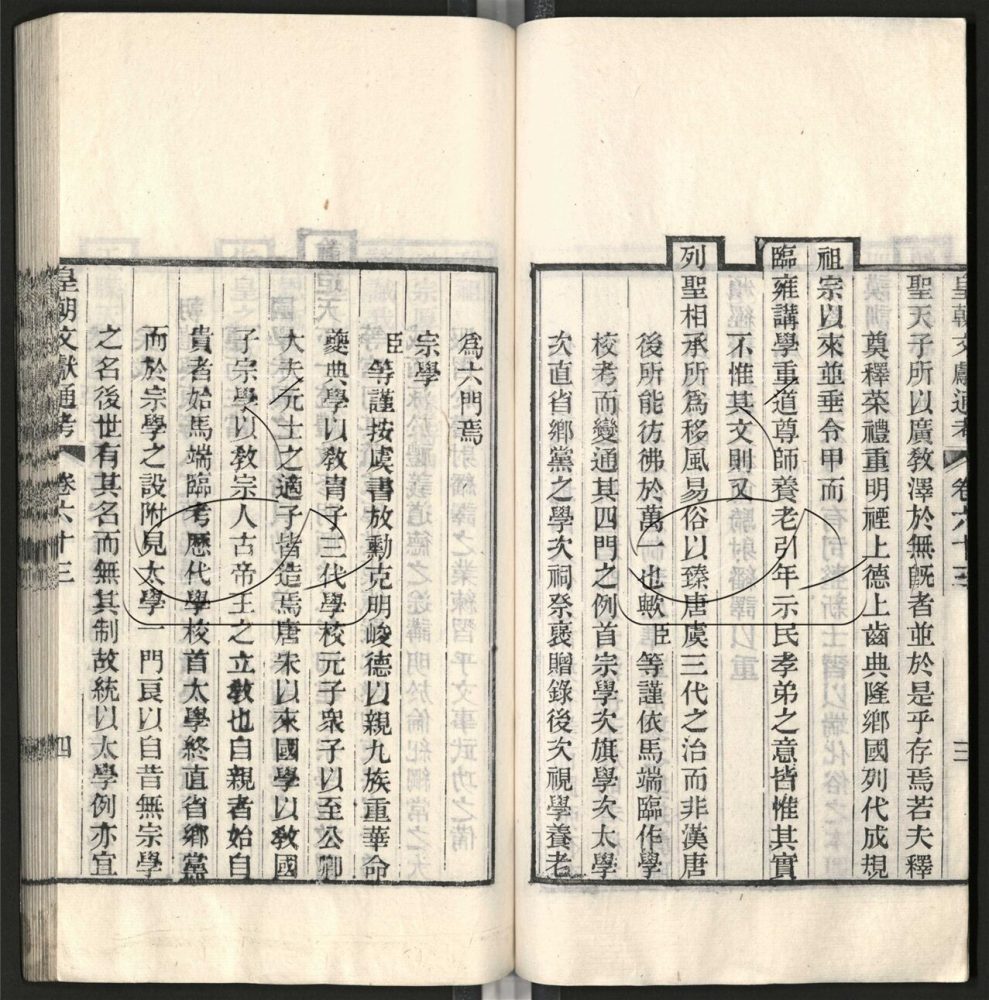 皇朝文獻通考 卷六十三 三
聖天子所以廣敎澤於無旣者並於是乎存焉若夫釋
奠釋菜禮重明禋上德上齒典隆鄕國列代成規
祖宗以來並垂令甲而
臨雍講學重道尊師養老引年示民孝弟之意皆惟其實
不惟其文則又
列聖相承所爲移風易俗以臻唐虞三代之治而非漢唐
後所能彷彿於萬一也歟臣等謹依馬端臨作學
校考而變通其四門之例首宗學次旗學次太學
次直省鄕黨之學次祠祭褒贈錄後次視學養老
爲六門焉
宗學
臣等謹按虞書放勳克明峻德以親九族重華命
夔典學以敎冑子三代學校元子衆子以至公卿
大夫元士之適子皆造焉唐宋以來國學以敎國
子宗學以敎宗人古帝王之立敎也自親者始自
貴者始馬端臨考歷代學校首太學終直省鄕黨
而於宗學之設附見太學一門良以自昔無宗學
之名後世有其名而無其制故統以太學例亦宜
皇朝文獻通考 卷六十三 四